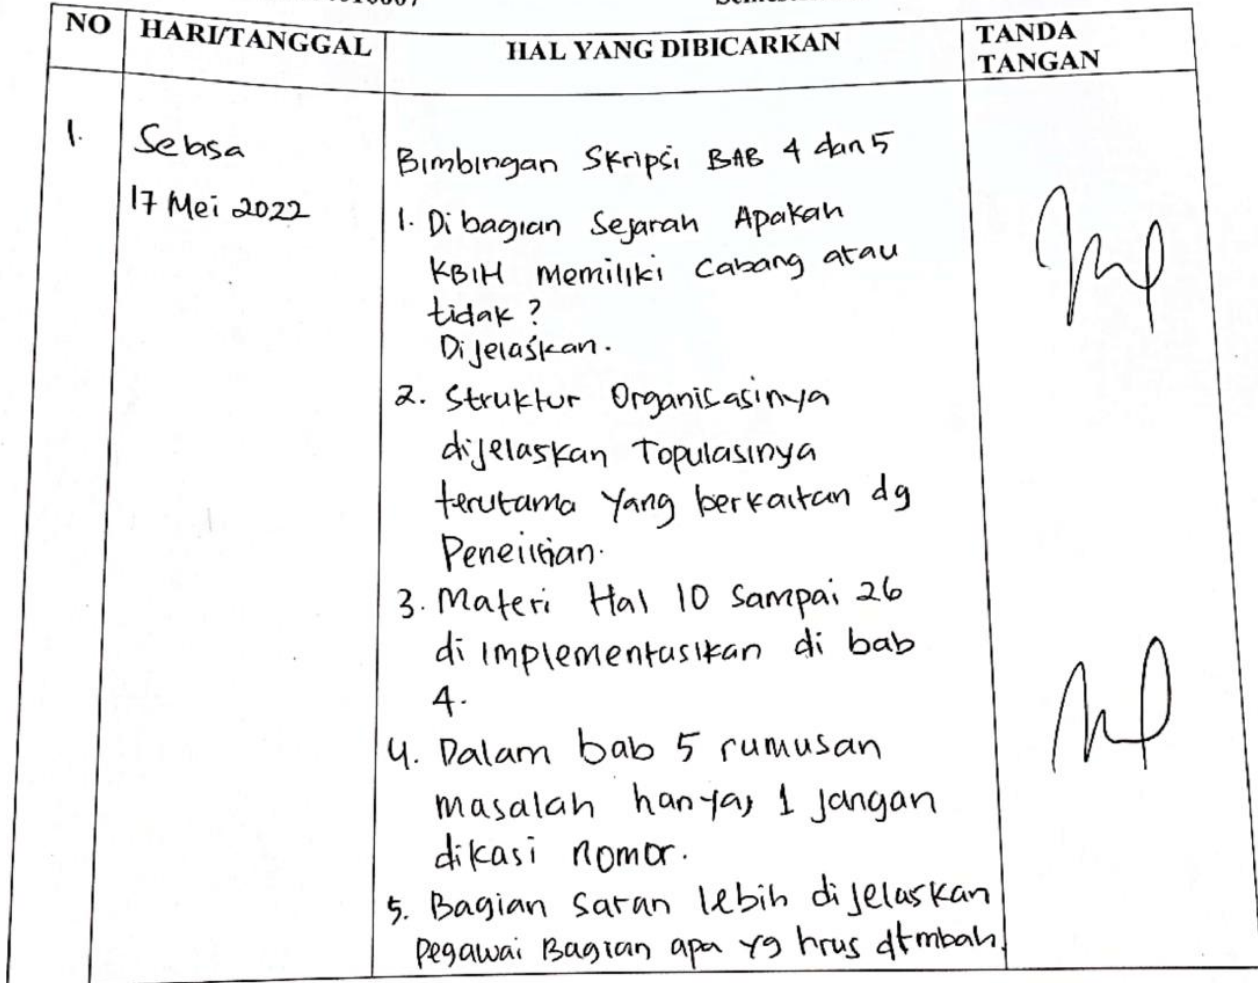 NO HARI/TANGGAL HAL YANG DIBICARKAN TANDA TANGAN
1. Selasa
17 Mei 2022
Bimbingan Skripsi BAB 4 dan 5
1. Di bagian Sejarah Apakah
KBIH Memiliki Cabang atau
tidak ?
Dijelaskan.
2. Struktur Organisasinya
dijelaskan Topulasinya
terutama Yang berkaitan dg
Penelitian.
3. Materi Hal 10 Sampai 26
di implementasikan di bab
4.
4. Dalam bab 5 rumusan
masalah hanya, 1 jangan
dikasi nomor.
5. Bagian saran lebih dijelaskan
Pegawai Bagian apa yg hrus dtmbah.